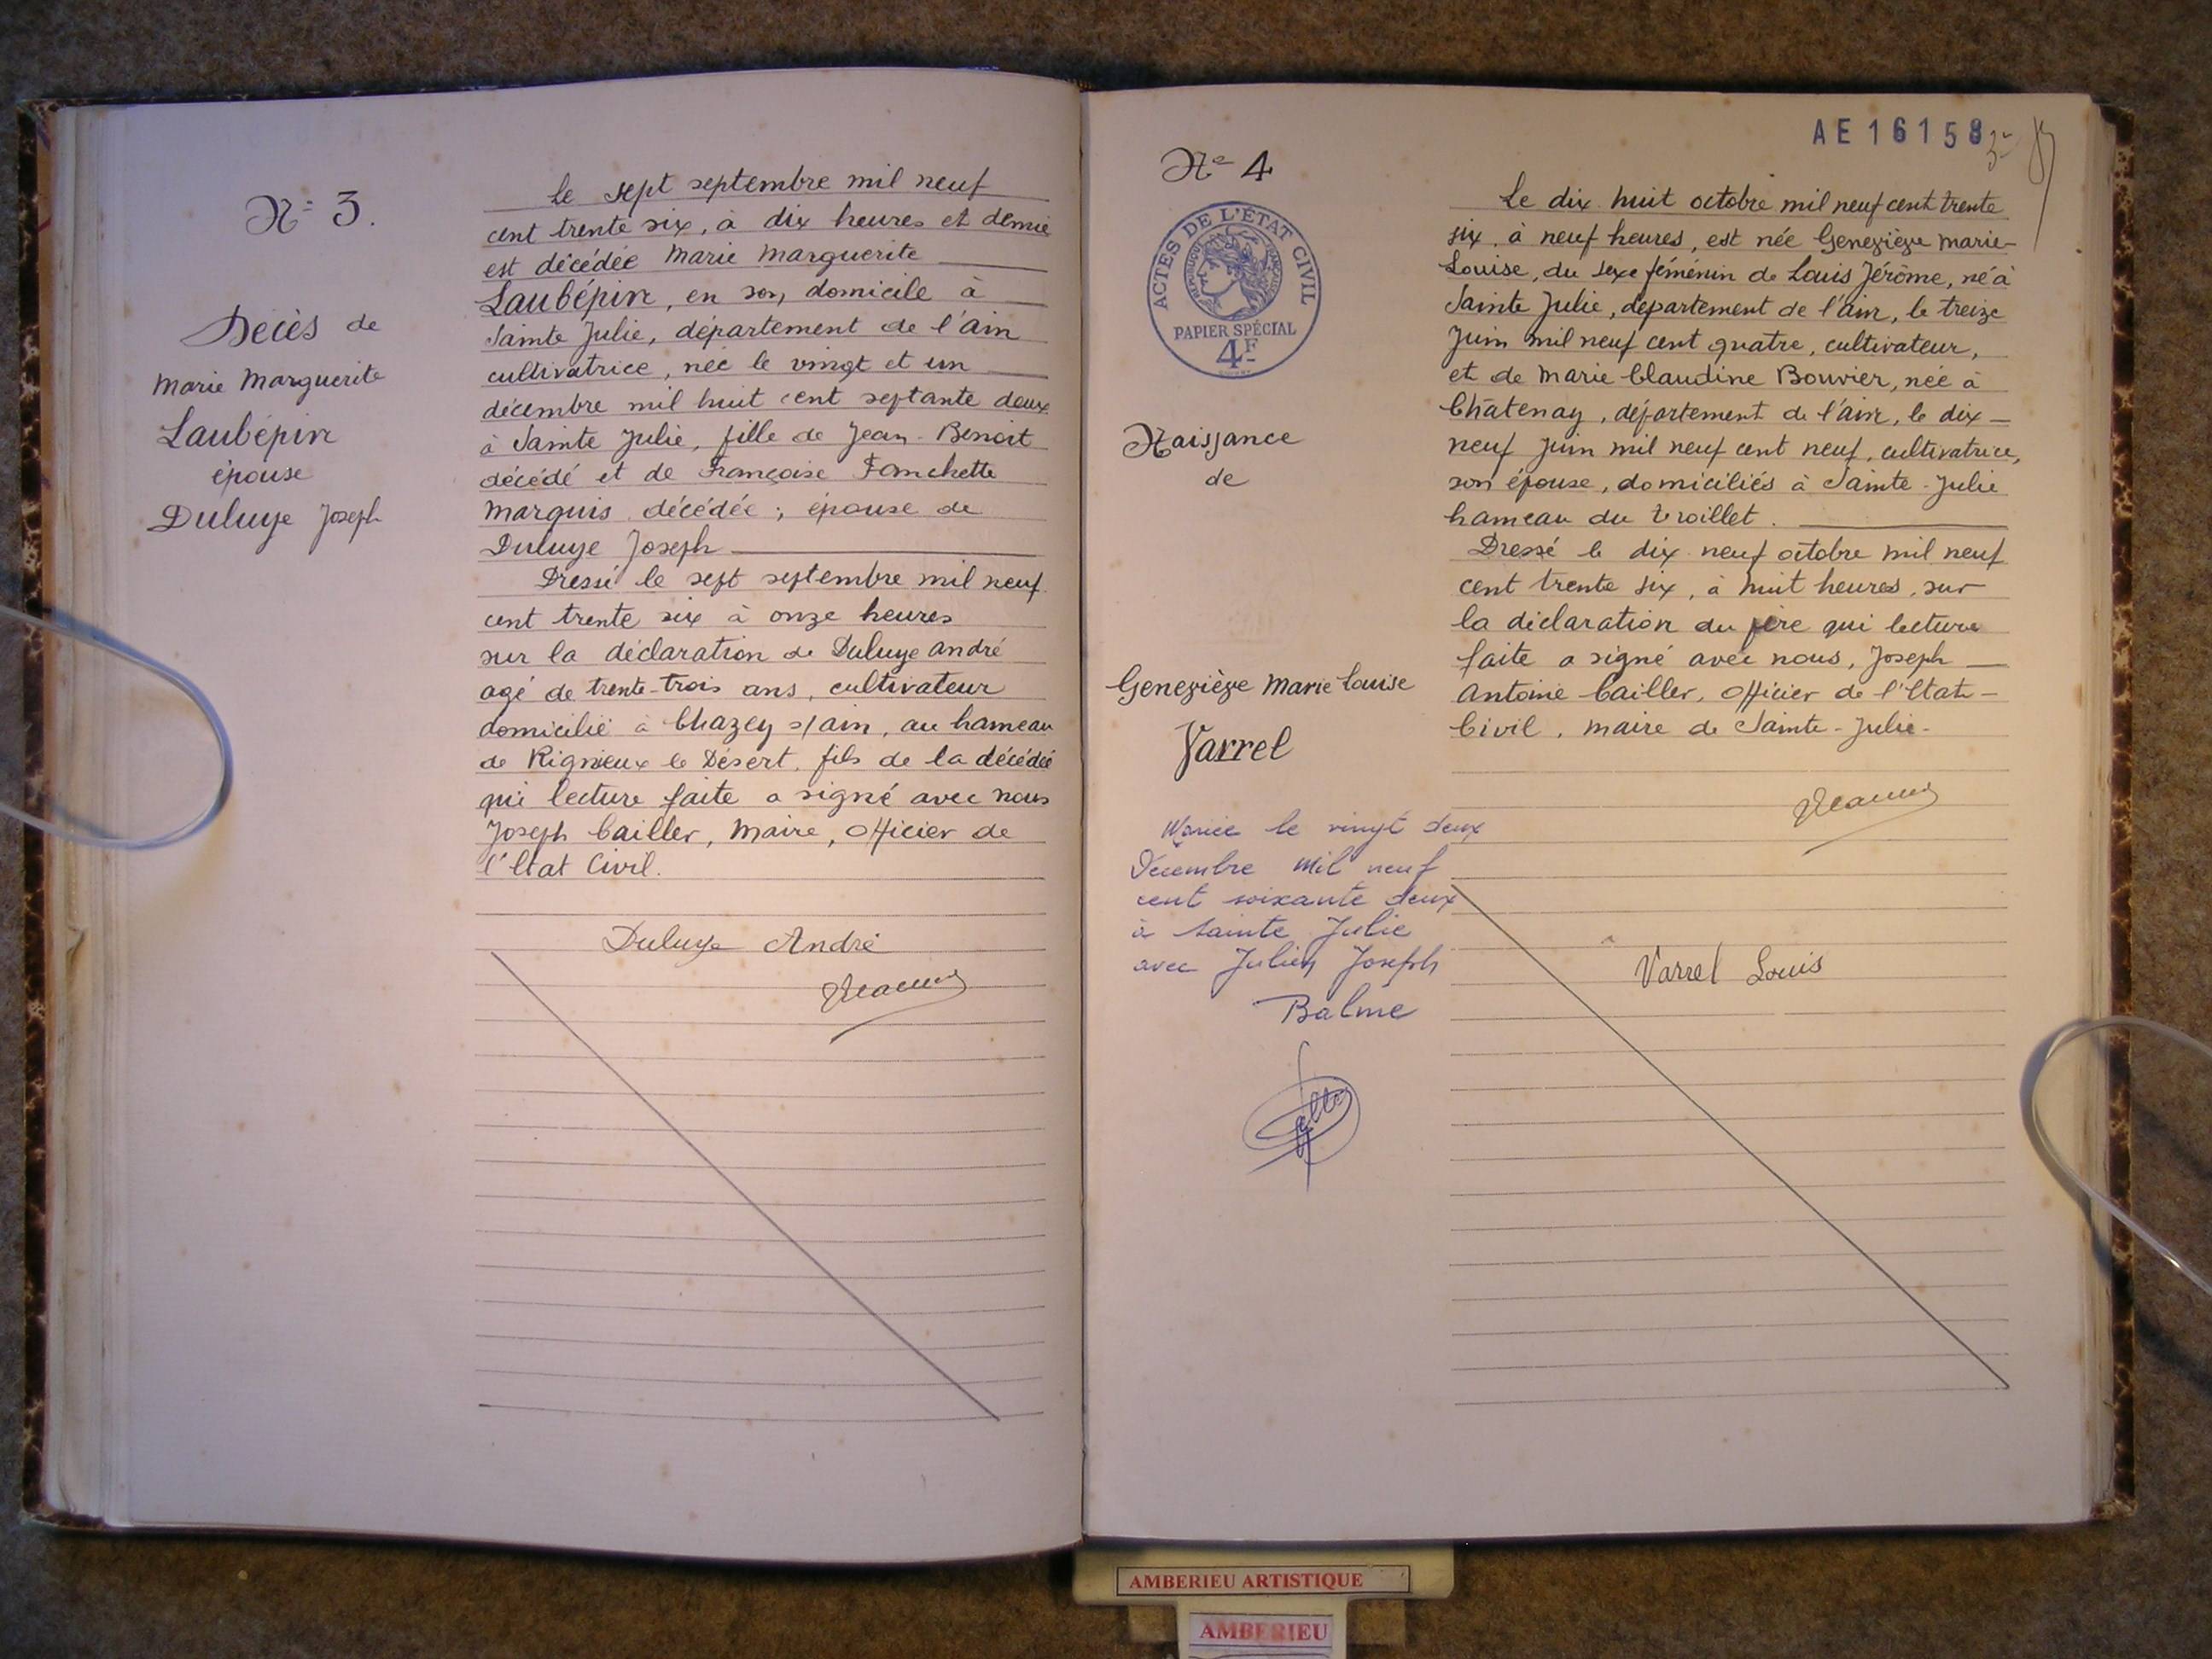 N° 3.
Décès de
Marie Marguerite
Laubépin
épouse
Duluye Joseph
Le sept septembre mil neuf
cent trente six, à dix heures et demie
est décédée Marie Marguerite
Laubépin, en son domicile à
Sainte Julie, département de l'ain
cultivatrice, née le vingt et un
décembre mil huit cent septante deux
à Sainte Julie, fille de Jean-Benoit
décédé et de Françoise Fanchette
Marquis décédée; épouse de
Duluye Joseph
Dressé le sept septembre mil neuf
cent trente six à onze heures
sur la déclaration de Duluye andré
agé de trente-trois ans, cultivateur
domicilié à Chazey s/ain, au hameau
de Rignieux le Désert, fils de la décédée
qui lecture faite a signé avec nous
Joseph Cailler, Maire, Officier de
l'Etat Civil.
Duluye André
AE16158
N° 4
ACTES DE L'ÉTAT CIVIL
RÉPUBLIQUE FRANÇAISE
PAPIER SPÉCIAL
4F
Naissance
de
Geneviève Marie Louise
Varrel
Mariée le vingt deux
Décembre mil neuf
cent soixante deux
à Sainte Julie
avec Julien Joseph
Balme
Le dix huit octobre mil neuf cent trente
six, à neuf heures, est née Geneviève Marie-
Louise, du sexe féménin de Louis Jérôme, né à
Sainte Julie, département de l'ain, le treize
Juin mil neuf cent quatre, cultivateur,
et de Marie Claudine Bouvier, née à
Châtenay, département de l'ain, le dix-
neuf Juin mil neuf cent neuf, cultivatrice,
son épouse, domiciliés à Sainte-Julie
hameau du Troillet.
Dressé le dix neuf octobre mil neuf
cent trente six, à huit heures, sur
la déclaration du père qui lecture
faite a signé avec nous, Joseph
Antoine Cailler, Officier de l'Etat-
Civil, Maire de Sainte-Julie-
Varrel Louis
AMBERIEU ARTISTIQUE
AMBERIEU